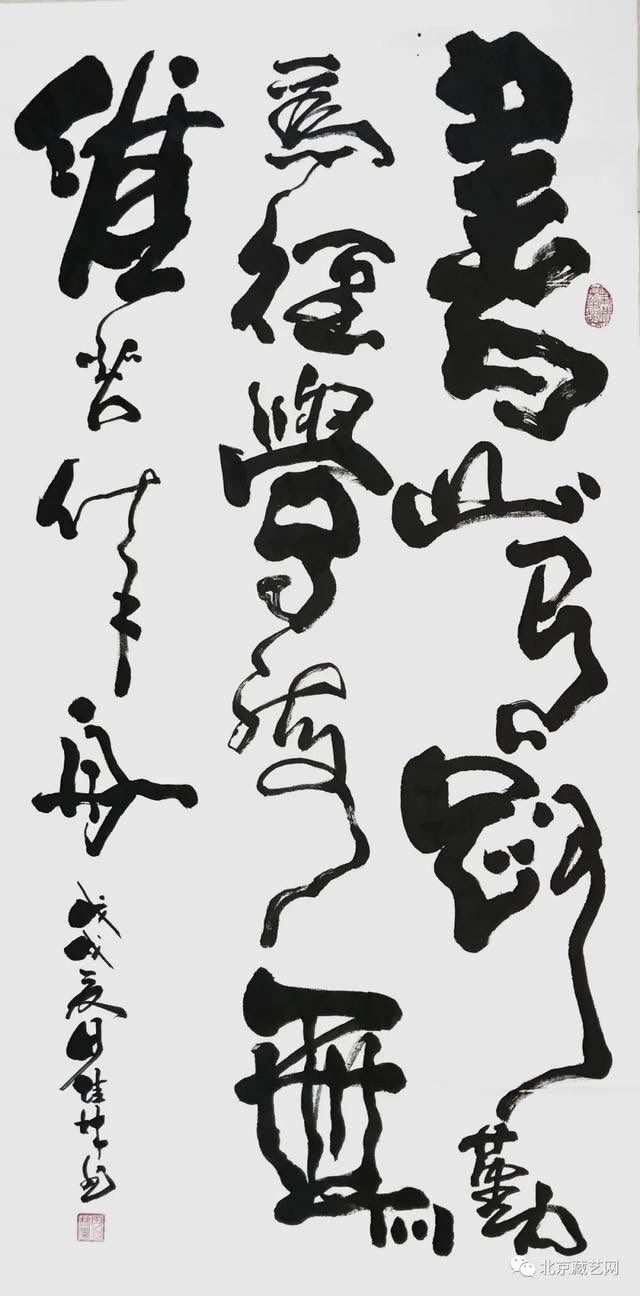 書山有路勤
為徑學海無
涯苦作舟
戊戌夏日佳坤书
北京藏艺网